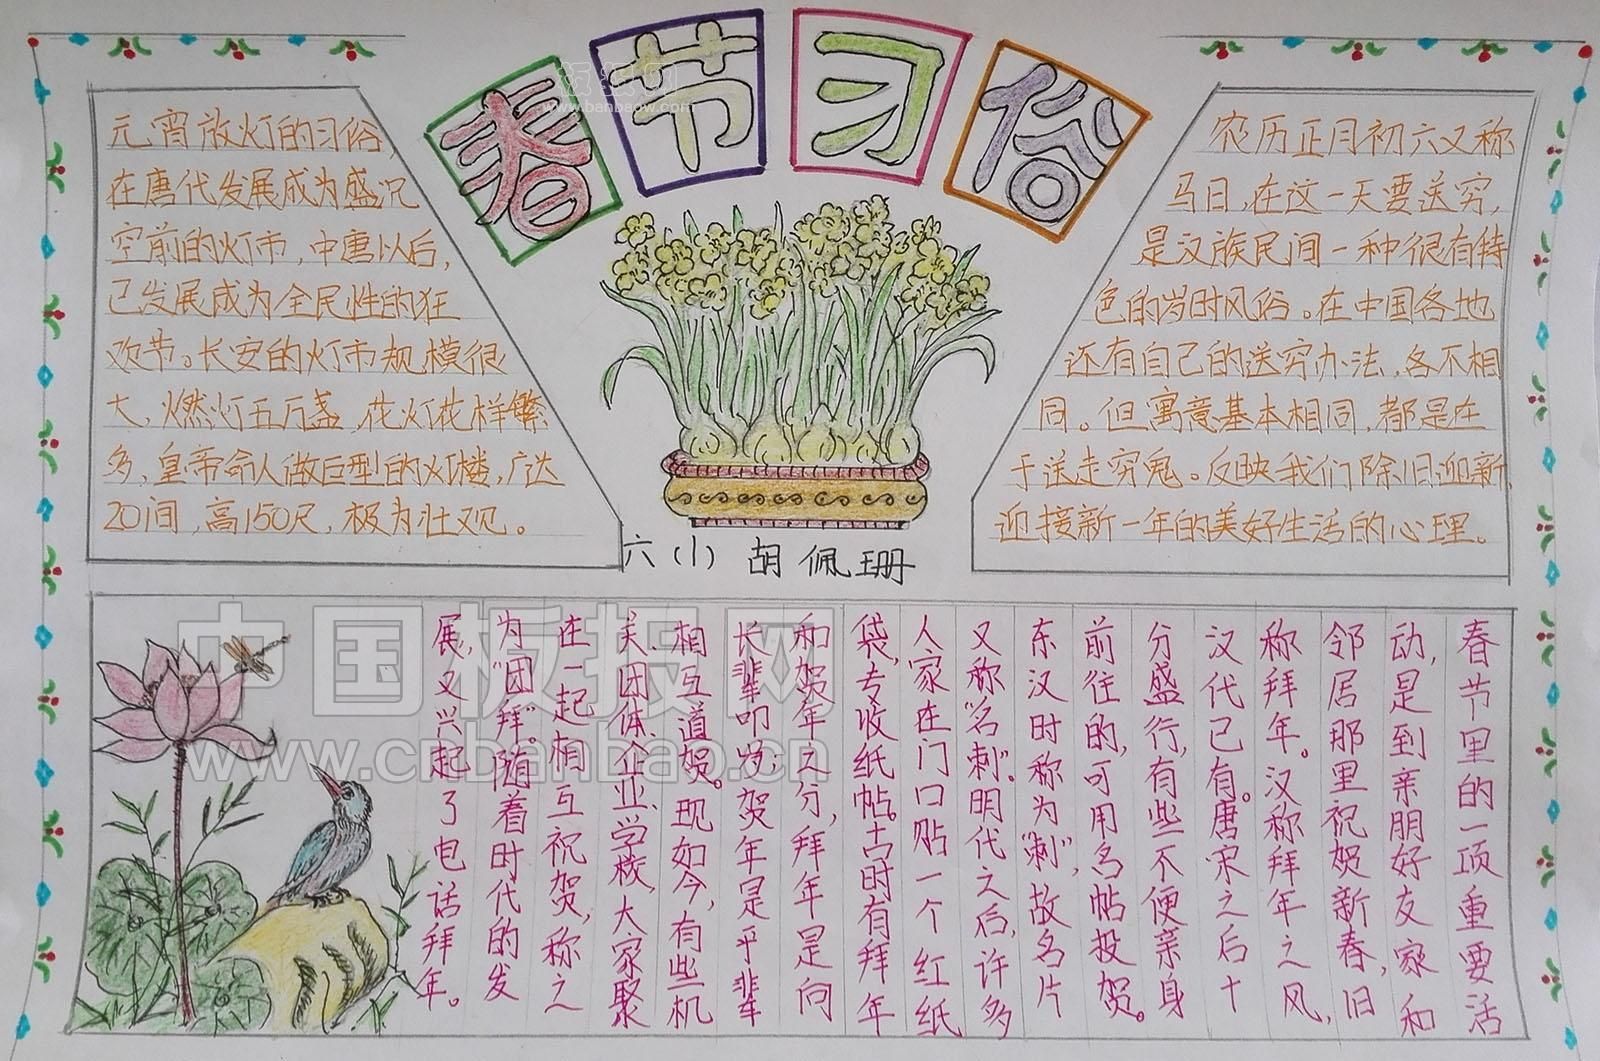 春节习俗
元宵放灯的习俗,
在唐代发展成为盛况
空前的灯市,中唐以后,
已发展成为全民性的狂
欢节。长安的灯市规模很
大,燃灯五万盏,花灯花样繁
多,皇帝命人做巨型的灯楼,广达
20间,高150尺,极为壮观。
农历正月初六又称
马日,在这一天要送穷,
是汉族民间一种很有特
色的岁时风俗。在中国各地
还有自己的送穷办法,各不相
同。但寓意基本相同,都是在
于送走穷鬼。反映我们除旧迎新,
迎接新一年的美好生活的心理。
六(1) 胡佩珊
春节里的一项重要活
动,是到亲朋好友家和
邻居那里祝贺新春,旧
称拜年。汉称拜年之风,
汉代已有。唐宋之后十
分盛行,有些不便亲身
前往的,可用名帖投贺。
东汉时称为"刺",故名片
又称"名刺"。明代之后,许多
人家在门口贴一个红纸
袋,专收纸帖。古时有拜年
和贺年之分,拜年是向
长辈叩岁;贺年是平辈
相互道贺。现如今,有些机
关、团体、企业、学校,大家聚
在一起相互祝贺,称之
为"团拜"。随着时代的发
展,又兴起了电话拜年。
板报网
www.banbaow.com
中国板报网
www.cnbanbao.cn